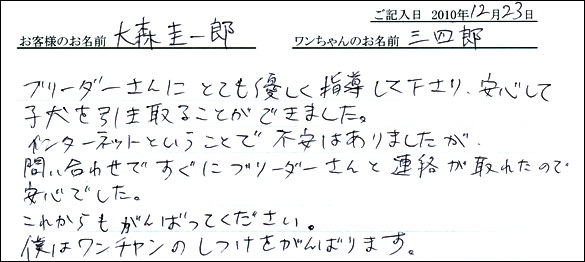 ご記入日 2010年12月23日
お客様のお名前 大森圭一郎 ワンちゃんのお名前 三四郎
ブリーダーさんに とても優しく指導して下さり、安心して
子犬を引き取ることができました。
インターネットということで 不安はありましたが、
問い合わせですぐにブリーダーさんと連絡が取れたので
安心でした。
これからもがんばってください。
僕はワンチャンのしつけをがんばります。